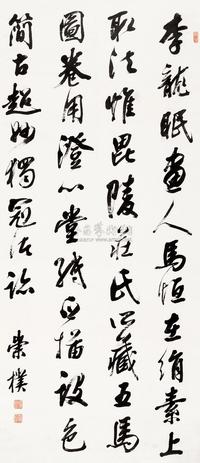 李龍眠畫人馬恒在絹素上
取法惟毘陵莊氏所藏五馬
圖卷用澄心堂紙白描設色
簡古超妙獨冠
崇樸